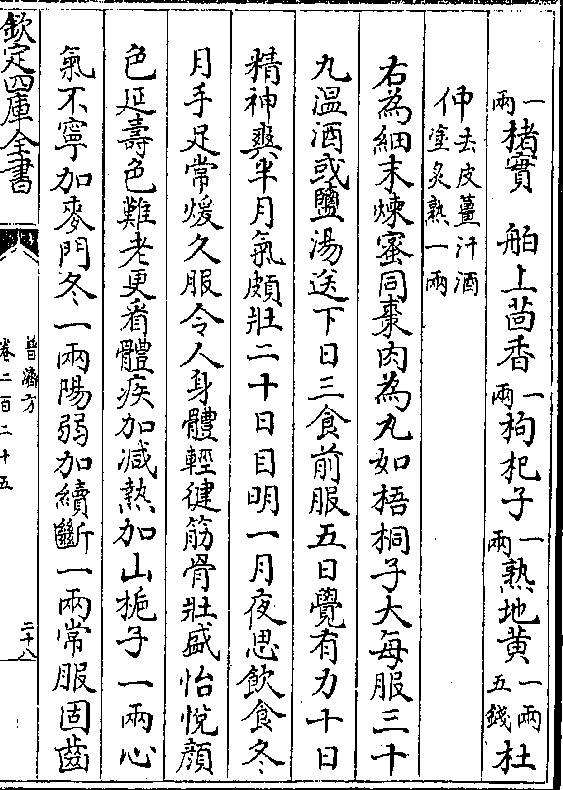 一兩楮實　舶上茴香一兩枸杞子一兩熟地黄一兩五錢杜
仲去皮薑汁酒塗炙熟一兩
右為細末煉蜜同棗肉為丸如梧桐子大每服三十
丸温酒或鹽湯送下日三食前服五日覺有力十日
精神爽半月氣頗壯二十日目明一月夜思飲食冬
月手足常煖久服令人身體輕健筋骨壯盛怡悅顔
色延壽色難老更看體疾加減熱加山梔子一兩心
氣不寧加麥門冬一兩陽弱加續斷一兩常服固齒
欽定四庫全書
普濟方
卷二百二十五
二十八